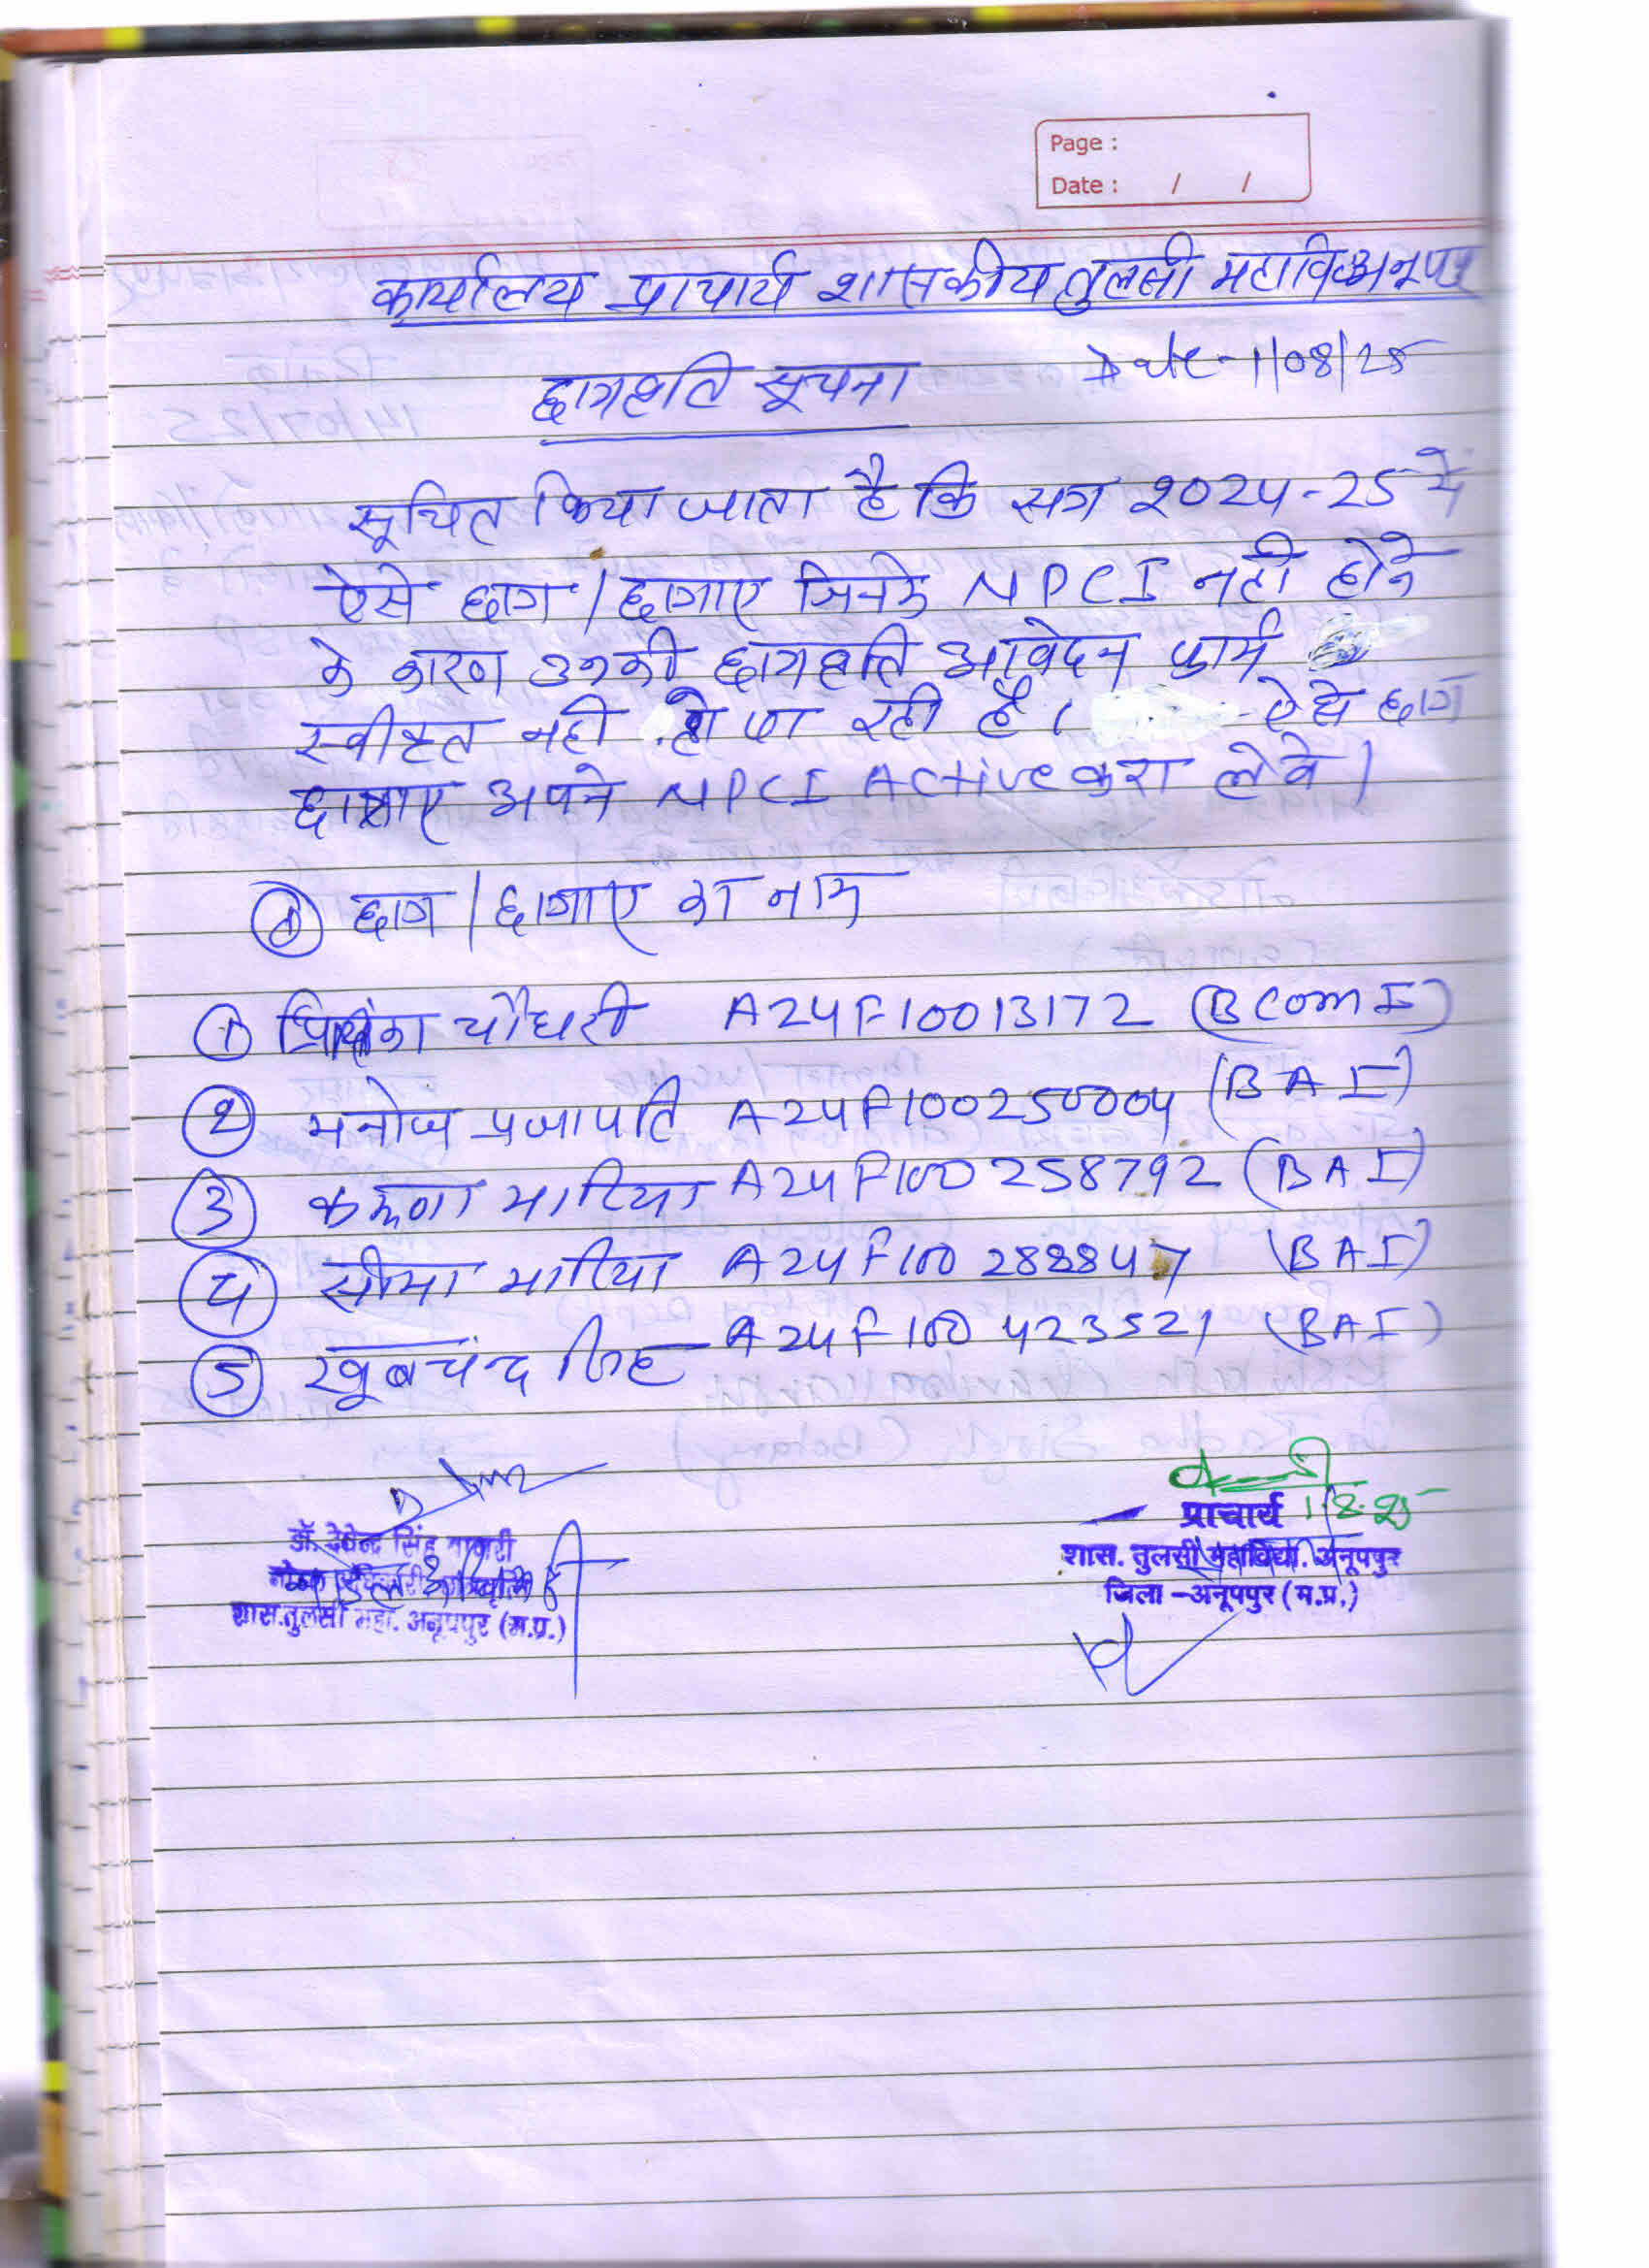 Page :
Date : / /
कार्यालय प्राचार्य शासकीय तुलसी महावि० अनूपपुर
छात्रवृत्ति सूचना Date - 1/08/25
सूचित किया जाता है कि सत्र 2024-25 मे
ऐसे छात्र / छात्राए जिनके NPCI नही होने
के कारण उनकी छात्रवृत्ति आवेदन फार्म
स्वीकृत नही हो पा रही है। ऐसे छात्र
छात्राए अपने NPCI Active करा लेवे।
छात्र / छात्राए का नाम
① प्रियंका चौधरी A24F10013172 (B Com I)
② मनोज प्रजापति A24F100250004 (B A I)
③ करूणा भारिया A24F100258792 (B A I)
④ सीमा भारिया A24F100288847 (B A I)
⑤ खूबचंद सिंह A24F100423521 (B A I)
प्राचार्य 1.8.25
डॉ. देवेन्द्र सिंह बागरी
शास. तुलसी महाविद्या. अनूपपुर
जिला -अनूपपुर (म.प्र.)
शास.तुलसी महा. अनूपपुर (म.प्र.)